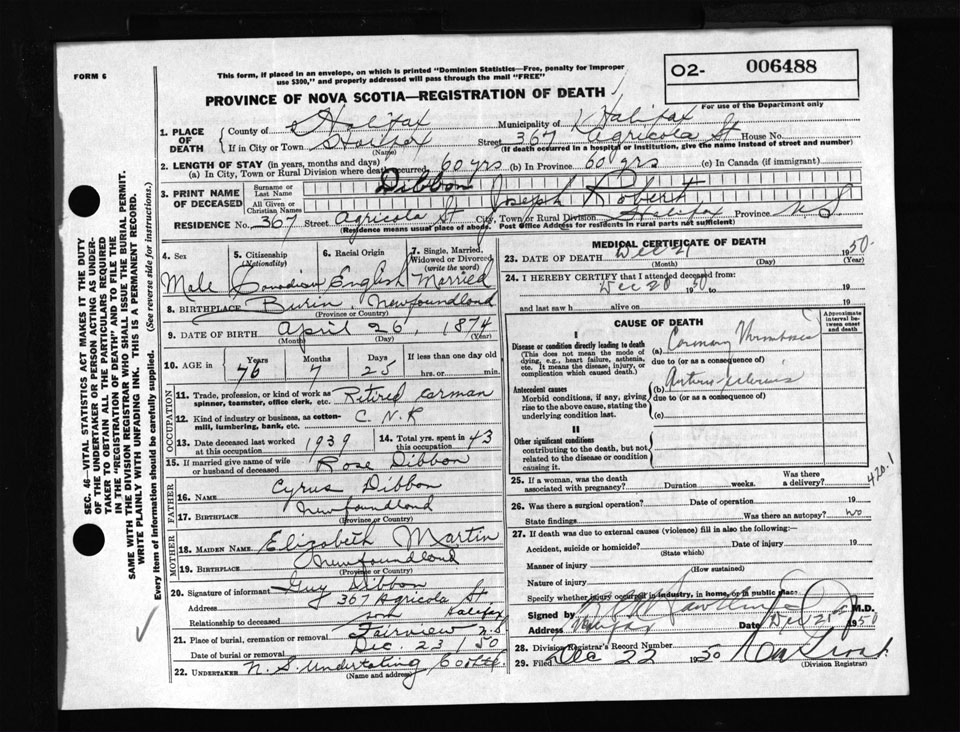 FORM 6
This form, if placed in an envelope, on which is printed "Dominion Statistics—Free, penalty for improper
use $300," and properly addressed will pass through the mail "FREE"
O2- 006488
For use of the Department only
PROVINCE OF NOVA SCOTIA—REGISTRATION OF DEATH
1. PLACE OF DEATH
County of Halifax Municipality of Halifax
If in City or Town Halifax (Name) Street 367 Agricola St House No.
(If death occurred in a hospital or institution, give the name instead of street and number)
2. LENGTH OF STAY (in years, months and days)
(a) In City, Town or Rural Division where death occurred 60 yrs (b) In Province 60 yrs (c) In Canada (if immigrant)
3. PRINT NAME OF DECEASED
Surname or Last Name Dibbon
All Given or Christian Names Joseph Robert
RESIDENCE No. 367 Street Agricola St City, Town or Rural Division Halifax Province N S
(Residence means usual place of abode. Post Office Address for residents in rural parts not sufficient)
4. Sex
Male
5. Citizenship (Nationality)
Canadian
6. Racial Origin
English
7. Single, Married, Widowed or Divorced (write the word)
Married
8. BIRTHPLACE Burin, Newfoundland
(Province or Country)
9. DATE OF BIRTH April 26, 1874
(Month) (Day) (Year)
10. AGE in Years Months Days If less than one day old
76 7 25 hrs. or min.
OCCUPATION
11. Trade, profession, or kind of work as spinner, teamster, office clerk, etc. Retired Carman
12. Kind of industry or business, as cotton-mill, lumbering, bank, etc. C. N. R
13. Date deceased last worked at this occupation 1939
14. Total yrs. spent in this occupation 43
15. If married give name of wife or husband of deceased Rose Dibbon
FATHER
16. NAME Cyrus Dibbon
17. BIRTHPLACE Newfoundland
(Province or Country)
MOTHER
18. MAIDEN NAME Elizabeth Martin
19. BIRTHPLACE Newfoundland
(Province or Country)
20. Signature of informant Guy Dibbon
Address 367 Agricola St
Relationship to deceased son Halifax
21. Place of burial, cremation or removal Fairview N.S.
Date of burial or removal Dec. 23 / 50
22. UNDERTAKER N. S. Undertaking Co
(Name and address)
MEDICAL CERTIFICATE OF DEATH
23. DATE OF DEATH Dec 21 1950
(Month) (Day) (Year)
24. I HEREBY CERTIFY that I attended deceased from
Dec 20 1950 to 19
and last saw h alive on 19
CAUSE OF DEATH
Approximate interval between onset and death
I
Disease or condition directly leading to death
(This does not mean the mode of dying, e.g., heart failure, asthenia, etc. It means the disease, injury, or complication which caused death.)
(a) Coronary Thrombosis
due to (or as a consequence of)
Antecedent causes
Morbid conditions, if any, giving rise to the above cause, stating the underlying condition last.
(b)
due to (or as a consequence of)
(c)
II
Other significant conditions
contributing to the death, but not related to the disease or condition causing it.
420.1
25. If a woman, was the death associated with pregnancy? Duration weeks. Was there a delivery?
26. Was there a surgical operation? Date of operation 19
State findings Was there an autopsy? No
27. If death was due to external causes (violence) fill in also the following:—
Accident, suicide or homicide? Date of injury 19
(State which)
Manner of injury
(How sustained)
Nature of injury
Specify whether injury occurred in industry, in home, or in public place
Signed by M.D.
Address Halifax 1950
28. Division Registrar's Record Number
29. Filed Dec 22 1950
(Division Registrar)
SEC. 46—VITAL STATISTICS ACT MAKES IT THE DUTY
OF THE UNDERTAKER OR PERSON ACTING AS UNDER-
TAKER TO OBTAIN ALL THE PARTICULARS REQUIRED
IN THE "REGISTRATION OF DEATH" AND TO FILE THE
SAME WITH THE DIVISION REGISTRAR WHO SHALL ISSUE THE BURIAL PERMIT.
WRITE PLAINLY WITH UNFADING INK. THIS IS A PERMANENT RECORD.
Every item of information should be carefully supplied. (See reverse side for instructions.)